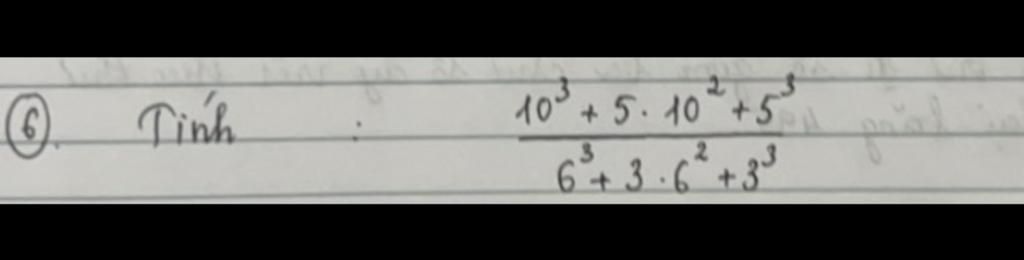 6. Tính : \frac{10^3 + 5 \cdot 10^2 + 5^3}{6^3 + 3 \cdot 6^2 + 3^3}